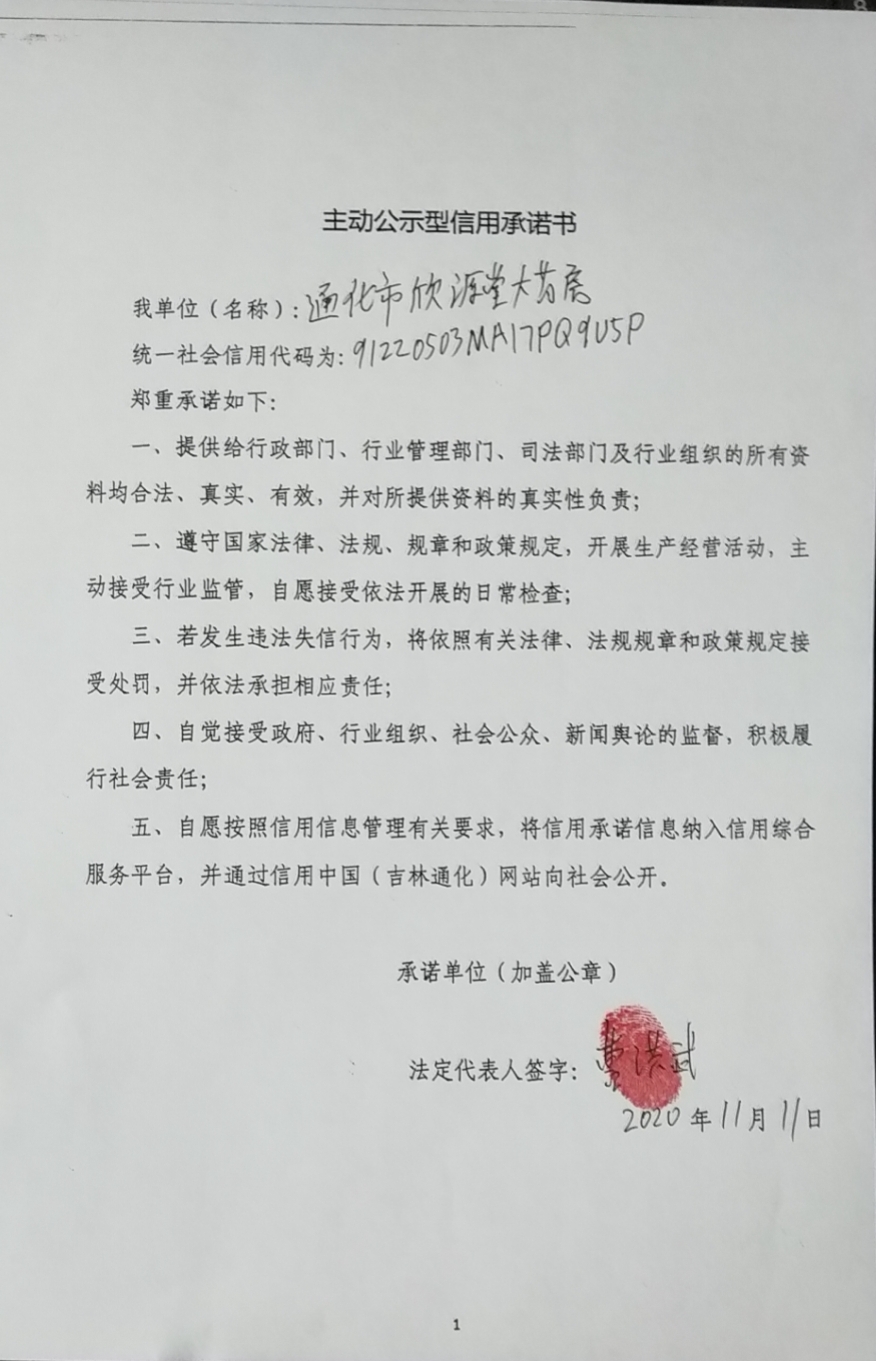 主动公示型信用承诺书
我单位（名称）：通化市欣源堂大药房
统一社会信用代码为：91220503MA17PQ9U5P
郑重承诺如下：
一、提供给行政部门、行业管理部门、司法部门及行业组织的所有资
料均合法、真实、有效，并对所提供资料的真实性负责；
二、遵守国家法律、法规、规章和政策规定，开展生产经营活动，主
动接受行业监管，自愿接受依法开展的日常检查；
三、若发生违法失信行为，将依照有关法律、法规规章和政策规定接
受处罚，并依法承担相应责任；
四、自觉接受政府、行业组织、社会公众、新闻舆论的监督，积极履
行社会责任；
五、自愿按照信用信息管理有关要求，将信用承诺信息纳入信用综合
服务平台，并通过信用中国（吉林通化）网站向社会公开。
承诺单位（加盖公章）
法定代表人签字：费洪武
2020年11月11日
1